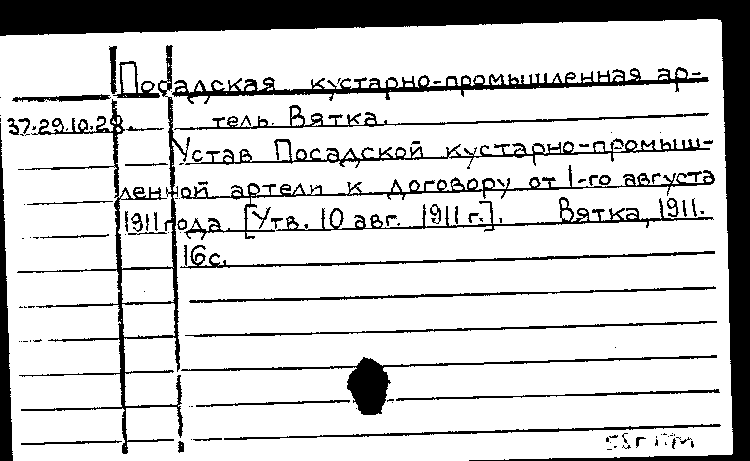 Посадская кустарно-промышленная ар-
37.29.10.28. тель. Вятка.
Устав Посадской кустарно-промыш-
ленной артели к договору от 1-го августа
1911 года. [Утв. 10 авг. 1911 г.]. Вятка, 1911.
16с.